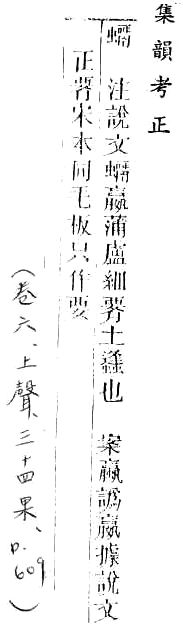 集韻考正
𧓏 注說文𧓏蠃蒲盧細𦝫土蠭也 案蠃譌嬴據說文
正𦝫宋本同毛板只作要
(卷六、上聲、三十四果、p.609)